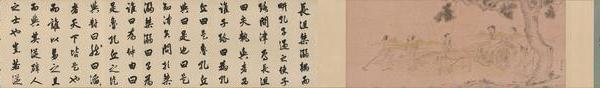 長沮桀溺耦而
耕孔子過之使子
路問津焉長沮
曰夫執輿者為
誰子路曰為孔
丘曰是魯孔丘
與曰是也曰是
知津矣問於桀
溺桀溺曰子為
誰曰為仲由曰
是魯孔丘之徒
與對曰然曰滔
滔者天下皆是也
而誰以易之且
而與其從辟人
之士也豈若從